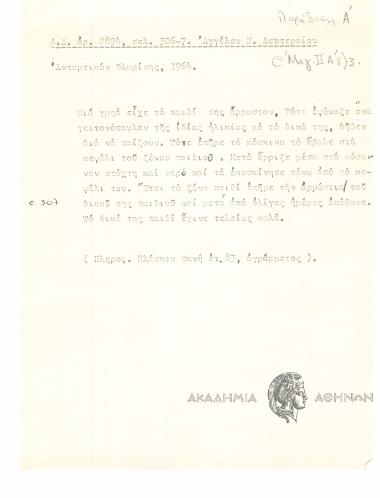 Παράδοση Α΄
Λ.Δ. ἀρ. 2894, σελ. 306-7. Ἀγγέλου Ν. Δευτεραίου
Ἀνταρτικόν Φλωρίνης, 1964.
Μιά γρηά εἶχε τό παιδί της ἄρρωστον. Τότε ἐφώναξε ἕνα
γειτονόπουλον τῆς ἰδίας ἡλικίας μέ τό δικό της, δῆθεν
διά νά παίζουν. Τότε ἐπῆρε τό κόσκινο τό ἔβαλε στό
κεφάλι τοῦ ξένου παιδιοῦ . Μετά ἔρριξε μέσα στό κόσκι-
νον στάχτη καί νερό καί τά ἐκοσκίνησε πάνω ἀπό τό κε-
φάλι του. Ἔτσι τό ξένο παιδί ἐπῆρε τήν ἀρρώστια τοῦ
δικοῦ της παιδιοῦ καί μετά ἀπό ὀλίγες ἡμέρες ἀπέθανε.
σ. 307
Τό δικό της παιδί ἔγινε τελείως καλά.
( Πληροφ. Φανή ἐτ. 83, ἀγράμματος ).
ΑΚΑΔΗΜΙΑ ΑΘΗΝΩΝ